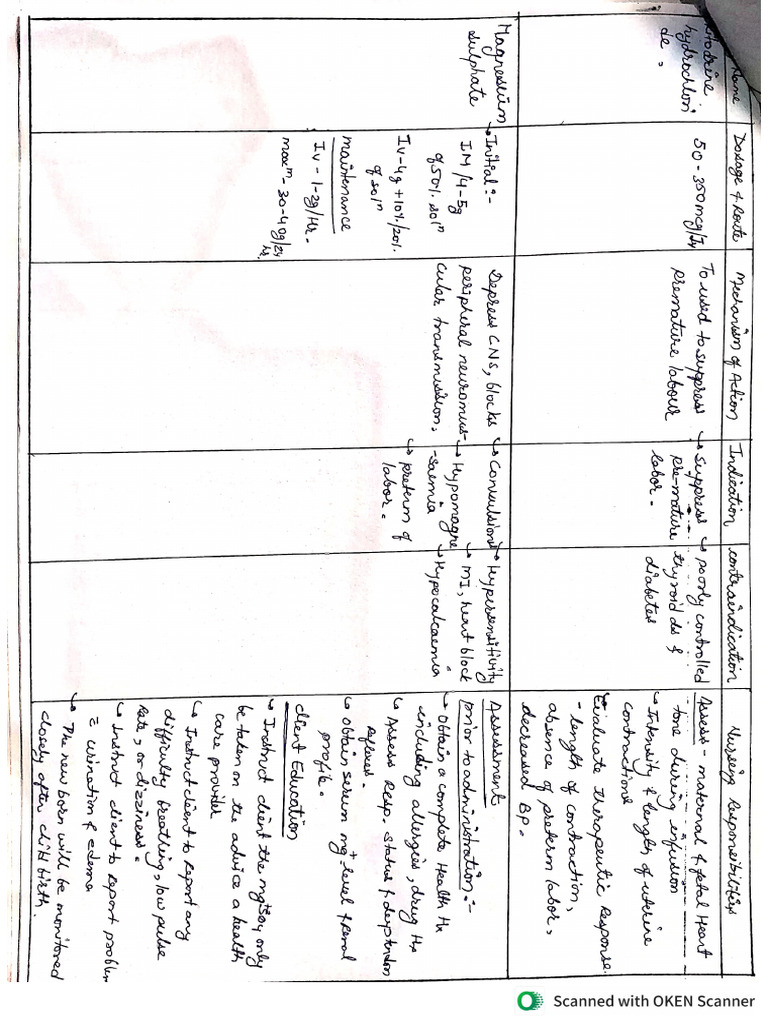 Name
Dosage & Route
Mechanism of Action
Indication
contraindication
Nursing Responsibilities
hydrochlori
de,
50 - 350 mcg/Iv
To used to suppress
premature labour
↳ Suppress
pre-mature
labor -
↳ poorly controlled
thyroid ds &
diabetes
Assess - maternal & fetal Heart
tone during infusion
↳ Intensity & length of uterine
contractions
Evaluate therapeutic Response.
- length of contraction,
absence of preterm labor,
decreased BP.
Magnesium
sulphate
→ Initial :-
IM/4-5g
of 50%. solⁿ
Iv-4g + 10%/20%.
of solⁿ
maintenance
Iv - 1-2g/Hr.
maxᵐ- 30-40g/24
hr.
Depress CNS, blocks
peripheral neuromus-
cular transmission,
↳ Convulsions
↳ Hypomagne
-saemia
↳ preterm of
labor.
↳ Hypersensitivity
↳ MI, heart block
↳ Hypocalcaemia
Assessment
prior to administration :-
↳ Obtain a complete Health Hx
including allergies, drug Hx
↳ Assess Resp. Status & deep tendon
reflexes.
↳ Obtain serum mg⁺ level & Renal
profile.
Client Education
↳ Instruct client the mgso4 only
be taken on the advice a health
care provider
↳ Instruct client to report any
difficulty breathing, low pulse
Rate, or dizziness.
↳ Instruct client to Report problem
c̄ urination & edema
↳ The new born will be monitored
closely after child birth.
Scanned with OKEN Scanner